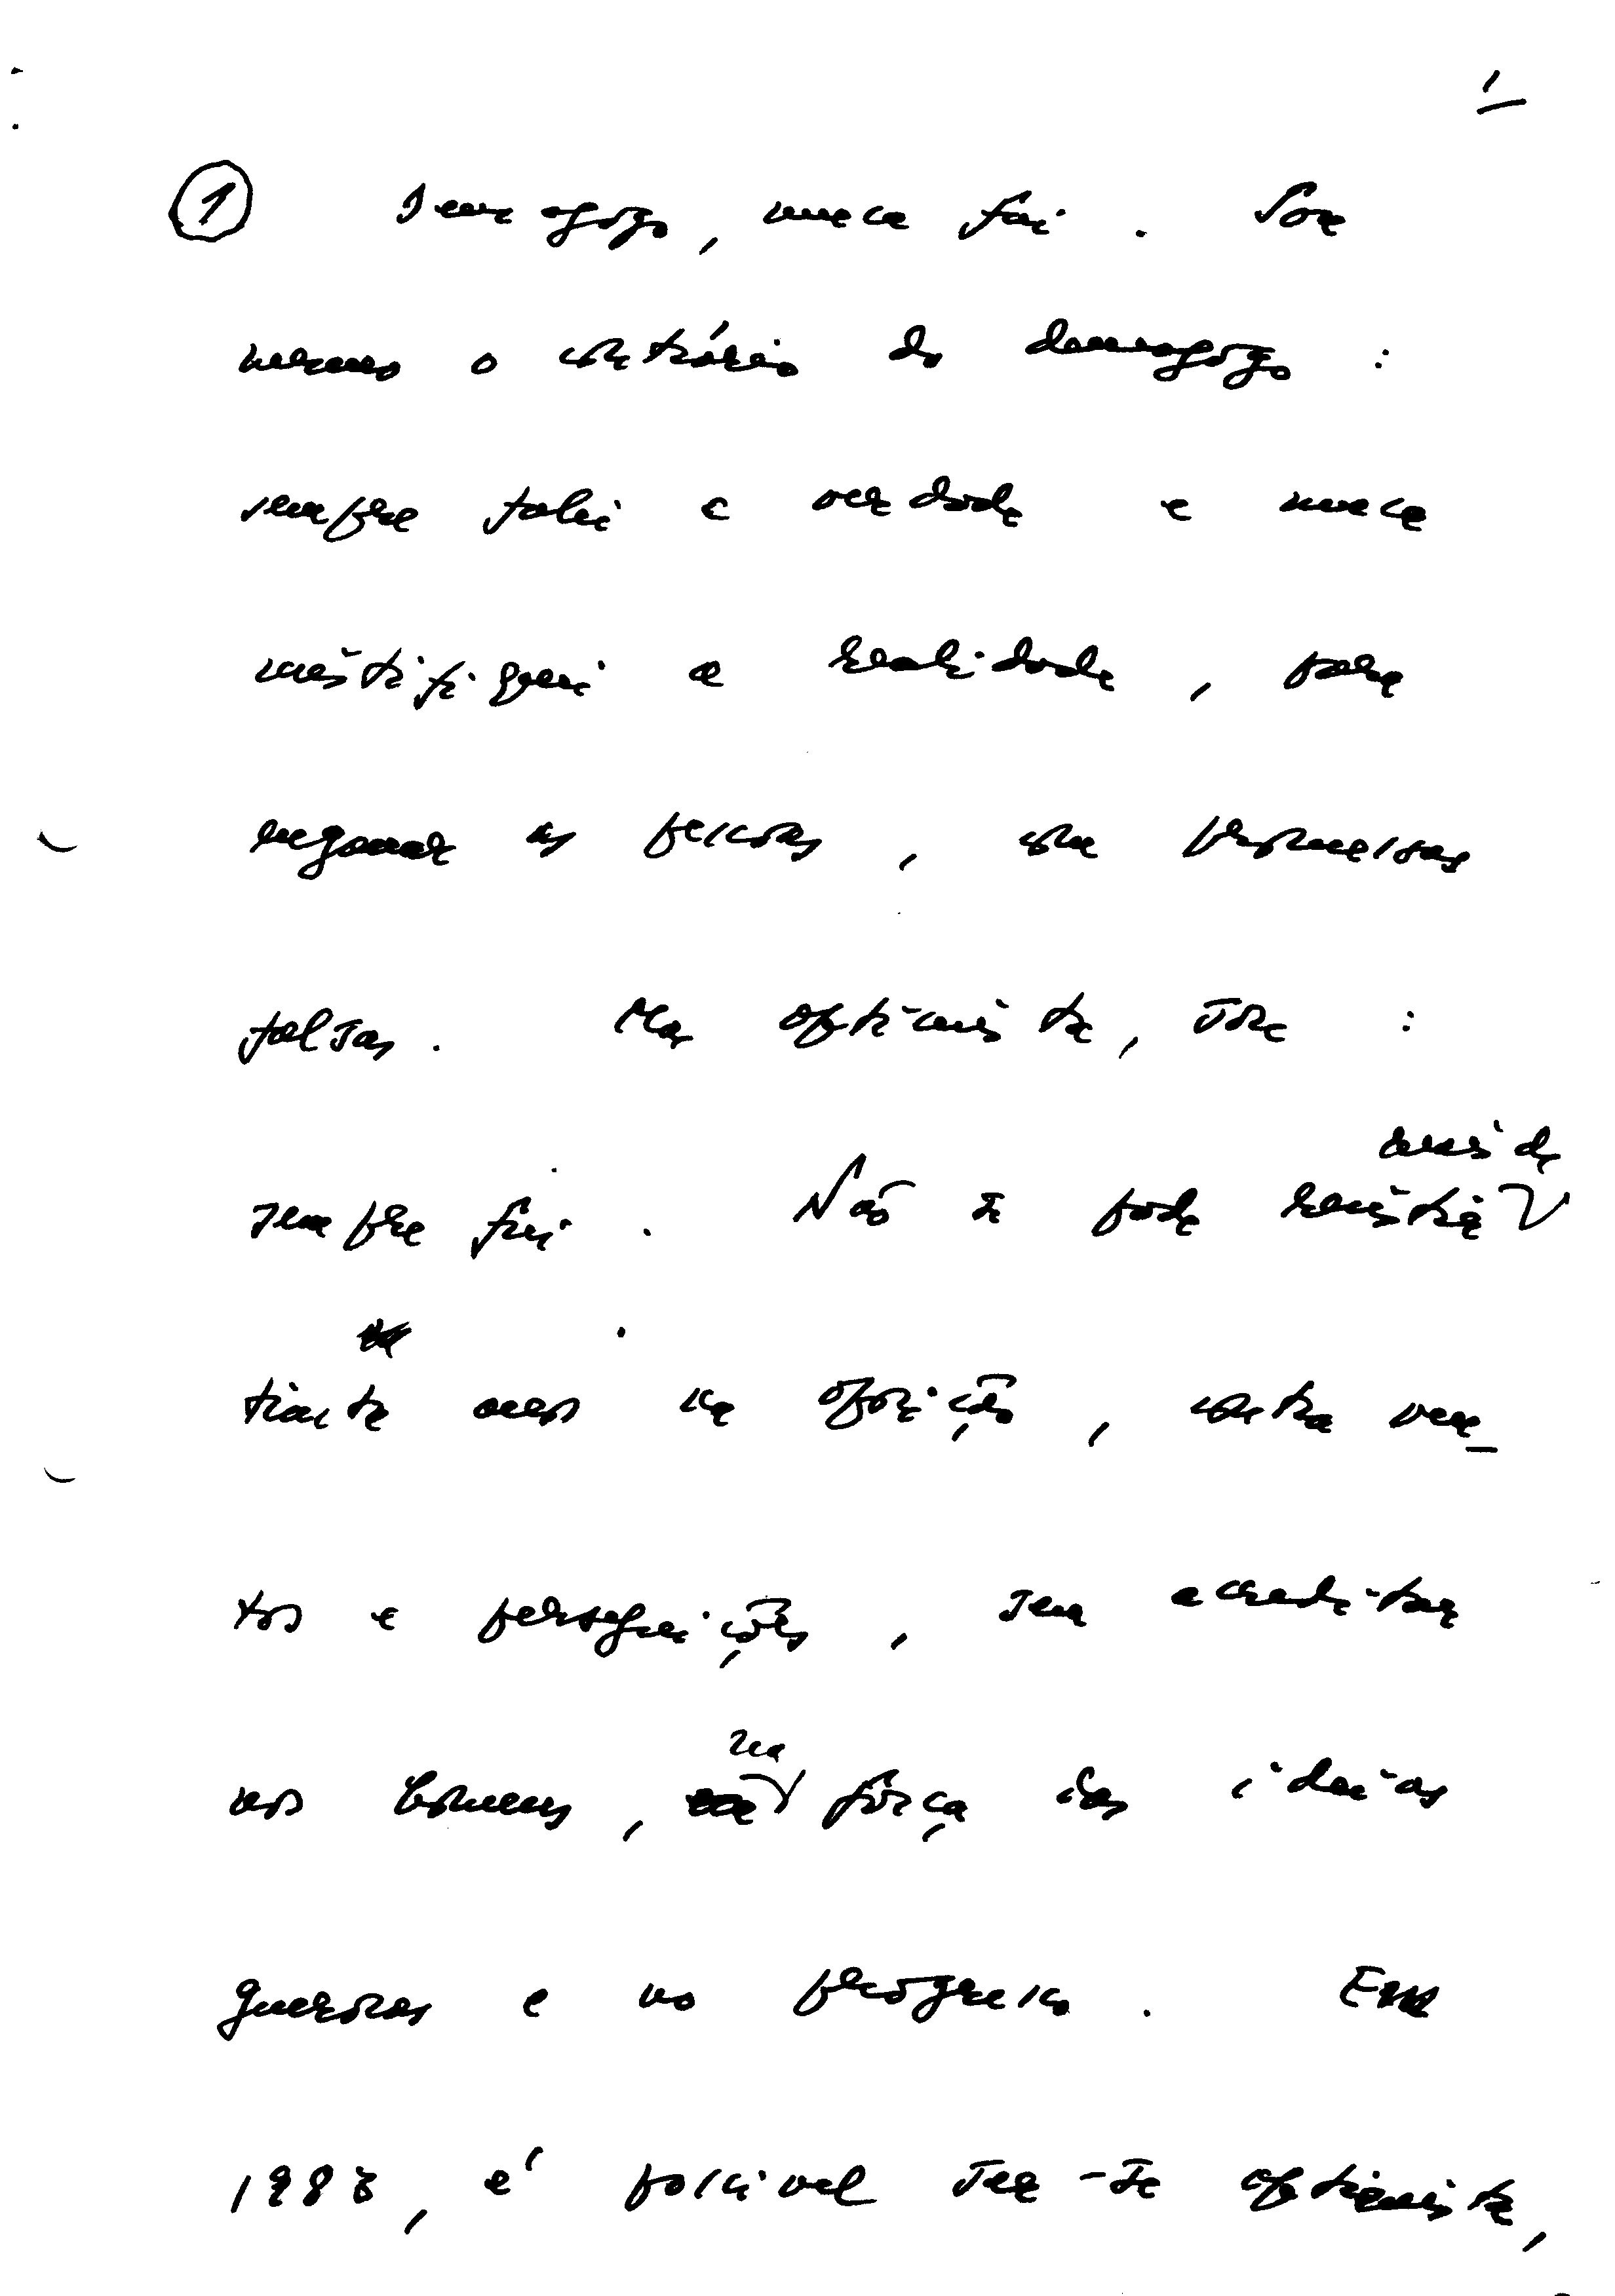 1
① Demagogo, nunca fui. Sou
mesmo o contrário do demagogo:
sempre falei a verdade e nunca
mistifiquei a realidade, para
enganar as pessoas, com promessas
falsas. Mas optimista, sou:
sempre fui. Não se pode resistir
mais de
trinta anos na oposição, contra ven-
tos e perseguições, sem acreditar
nos homens, na força das ideias
generosas e no progresso. Em
1983, é possível ser-se optimista,